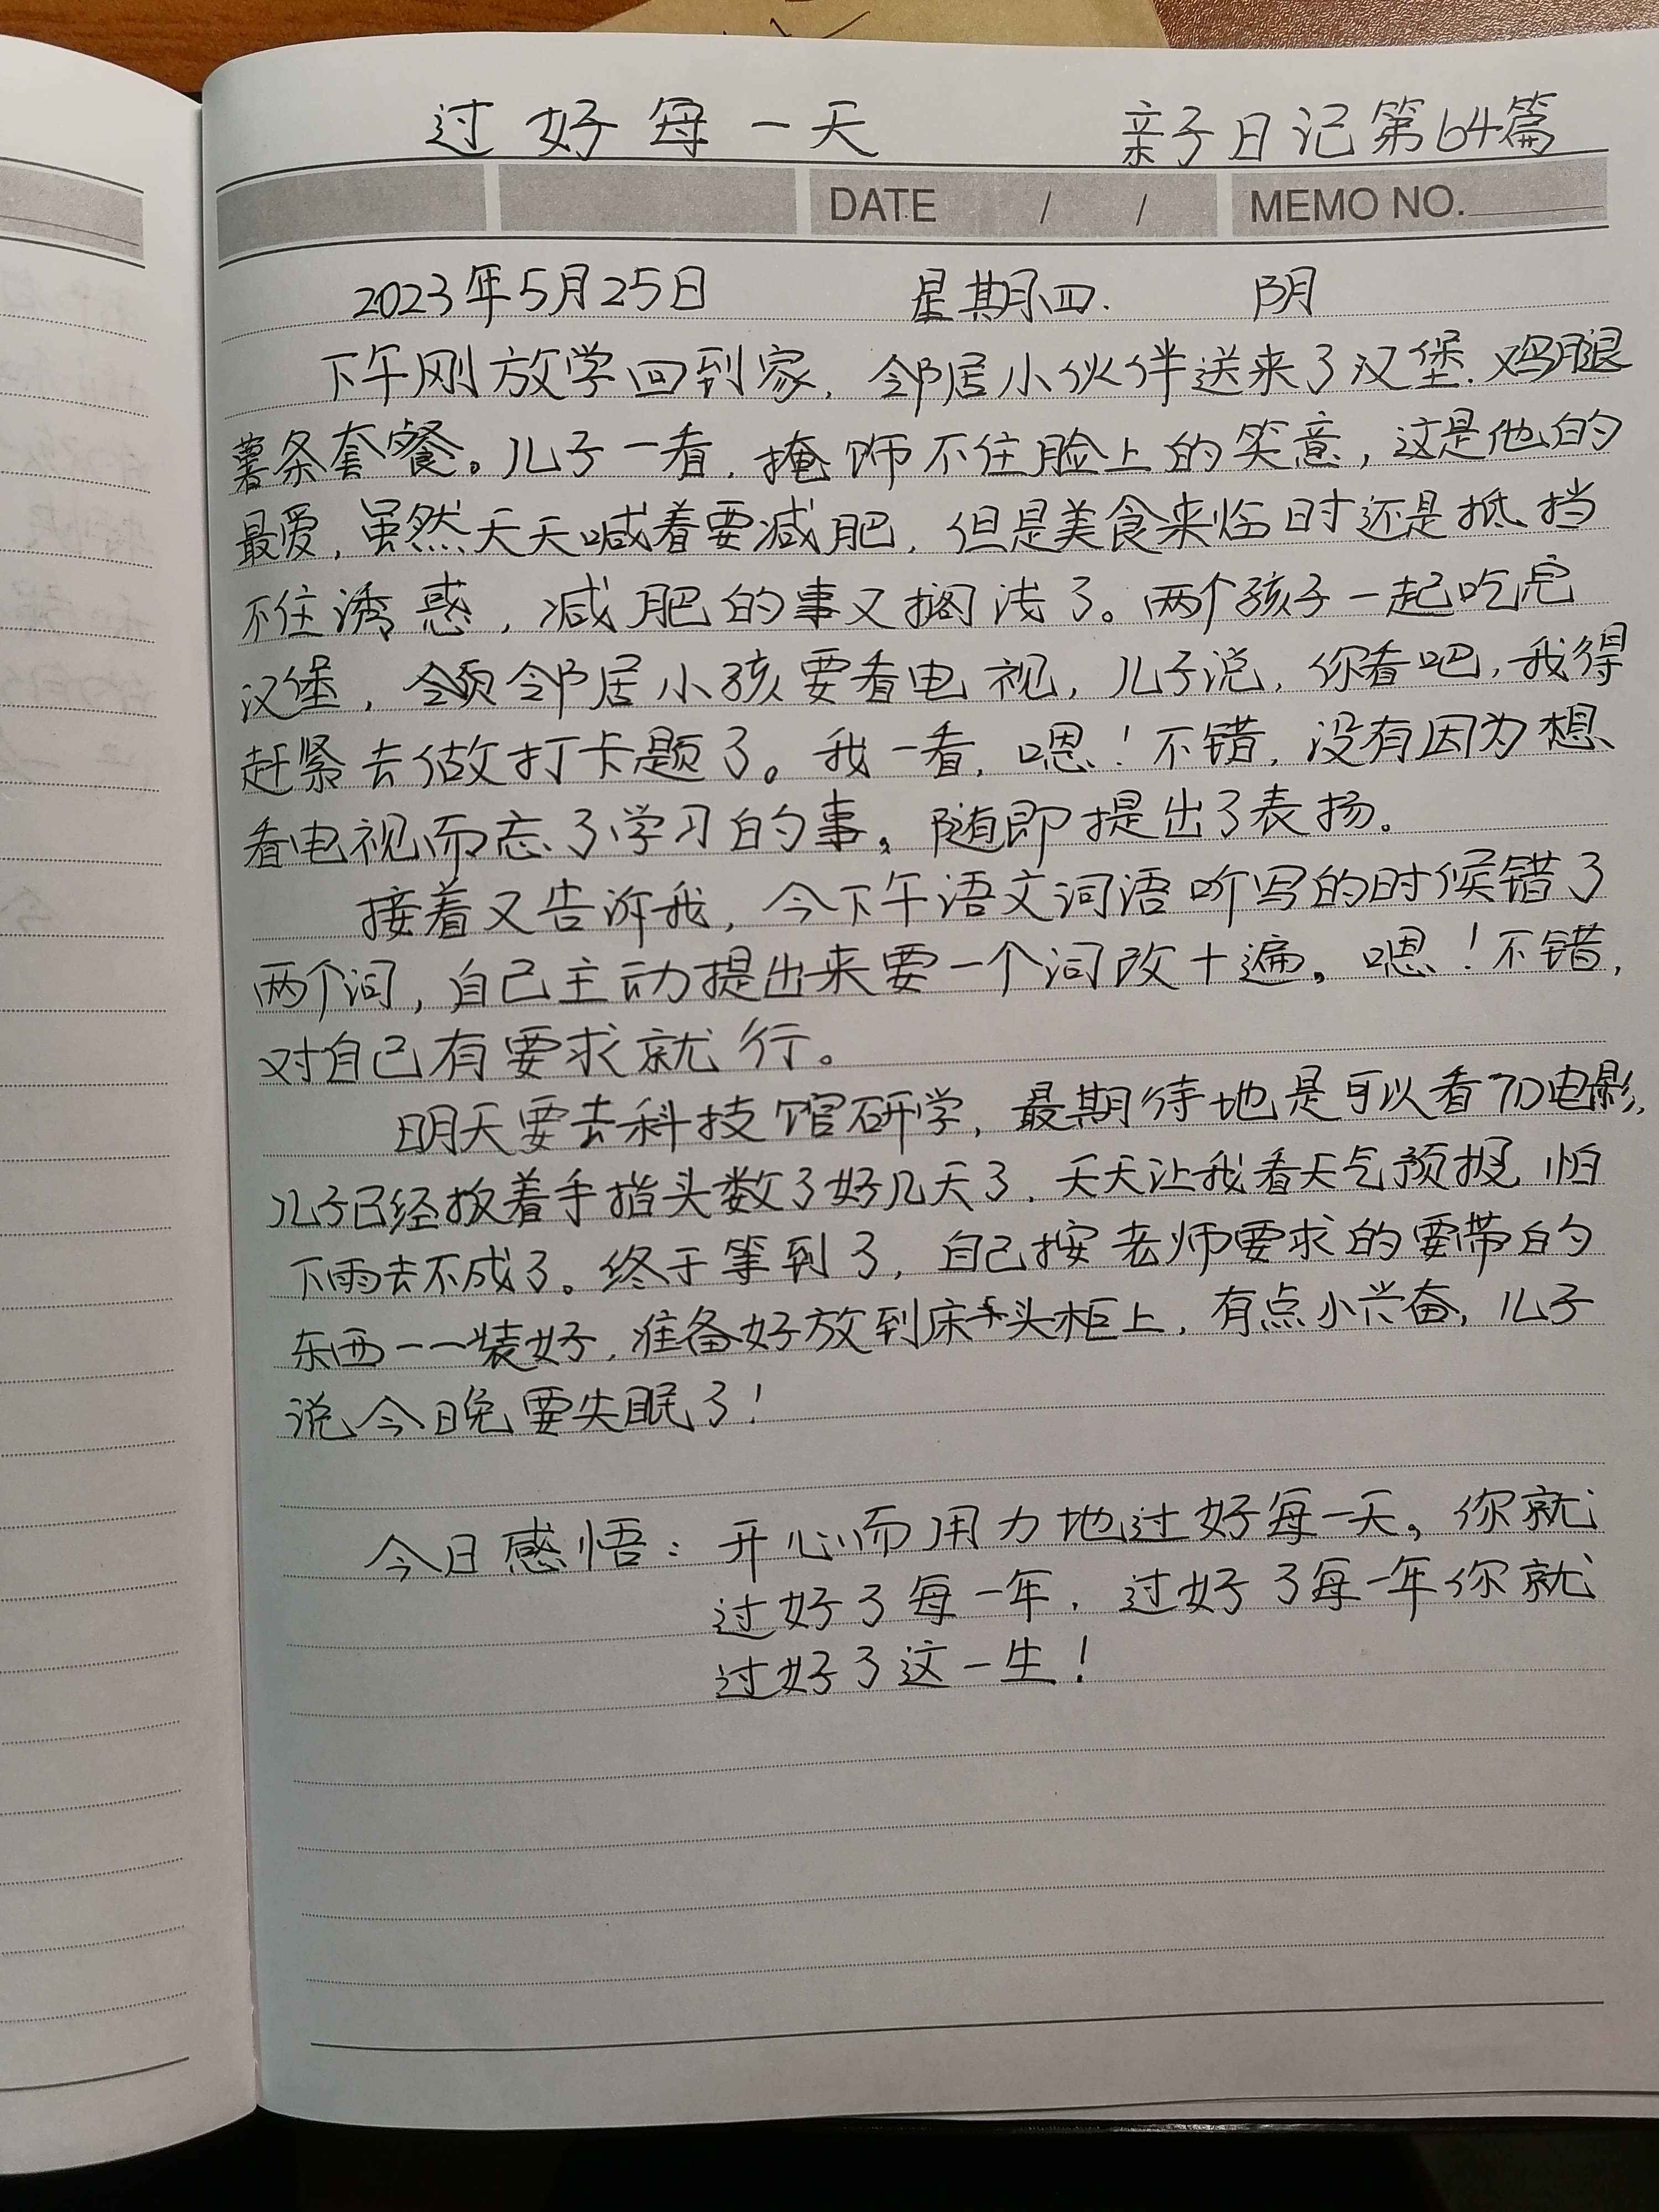 过好每一天 亲子日记第64篇
DATE / / MEMO NO.
2023年5月25日 星期四. 阴
下午刚放学回到家,邻居小伙伴送来了汉堡.鸡腿
薯条套餐。儿子一看,掩饰不住脸上的笑意,这是他的
最爱,虽然天天喊着要减肥,但是美食来临时还是抵挡
不住诱惑,减肥的事又搁浅了。两个孩子一起吃完
汉堡,邻居小孩要看电视,儿子说,你看吧,我得
赶紧去做打卡题了。我一看,嗯!不错,没有因为想
看电视而忘了学习的事。随即提出了表扬.
接着又告诉我,今下午语文词语听写的时候错了
两个词,自己主动提出来要一个词改十遍。嗯!不错,
对自己有要求就行。
明天要去科技馆研学,最期待地是可以看7D电影,
儿子已经扳着手指头数了好几天了,天天让我看天气预报,怕
下雨去不成了。终于等到了,自己按老师要求的要带的
东西一一装好,准备好放到床头柜上,有点小兴奋,儿子
说今晚要失眠了!
今日感悟:开心而用力地过好每一天。你就
过好了每一年,过好了每一年你就
过好了这一生!